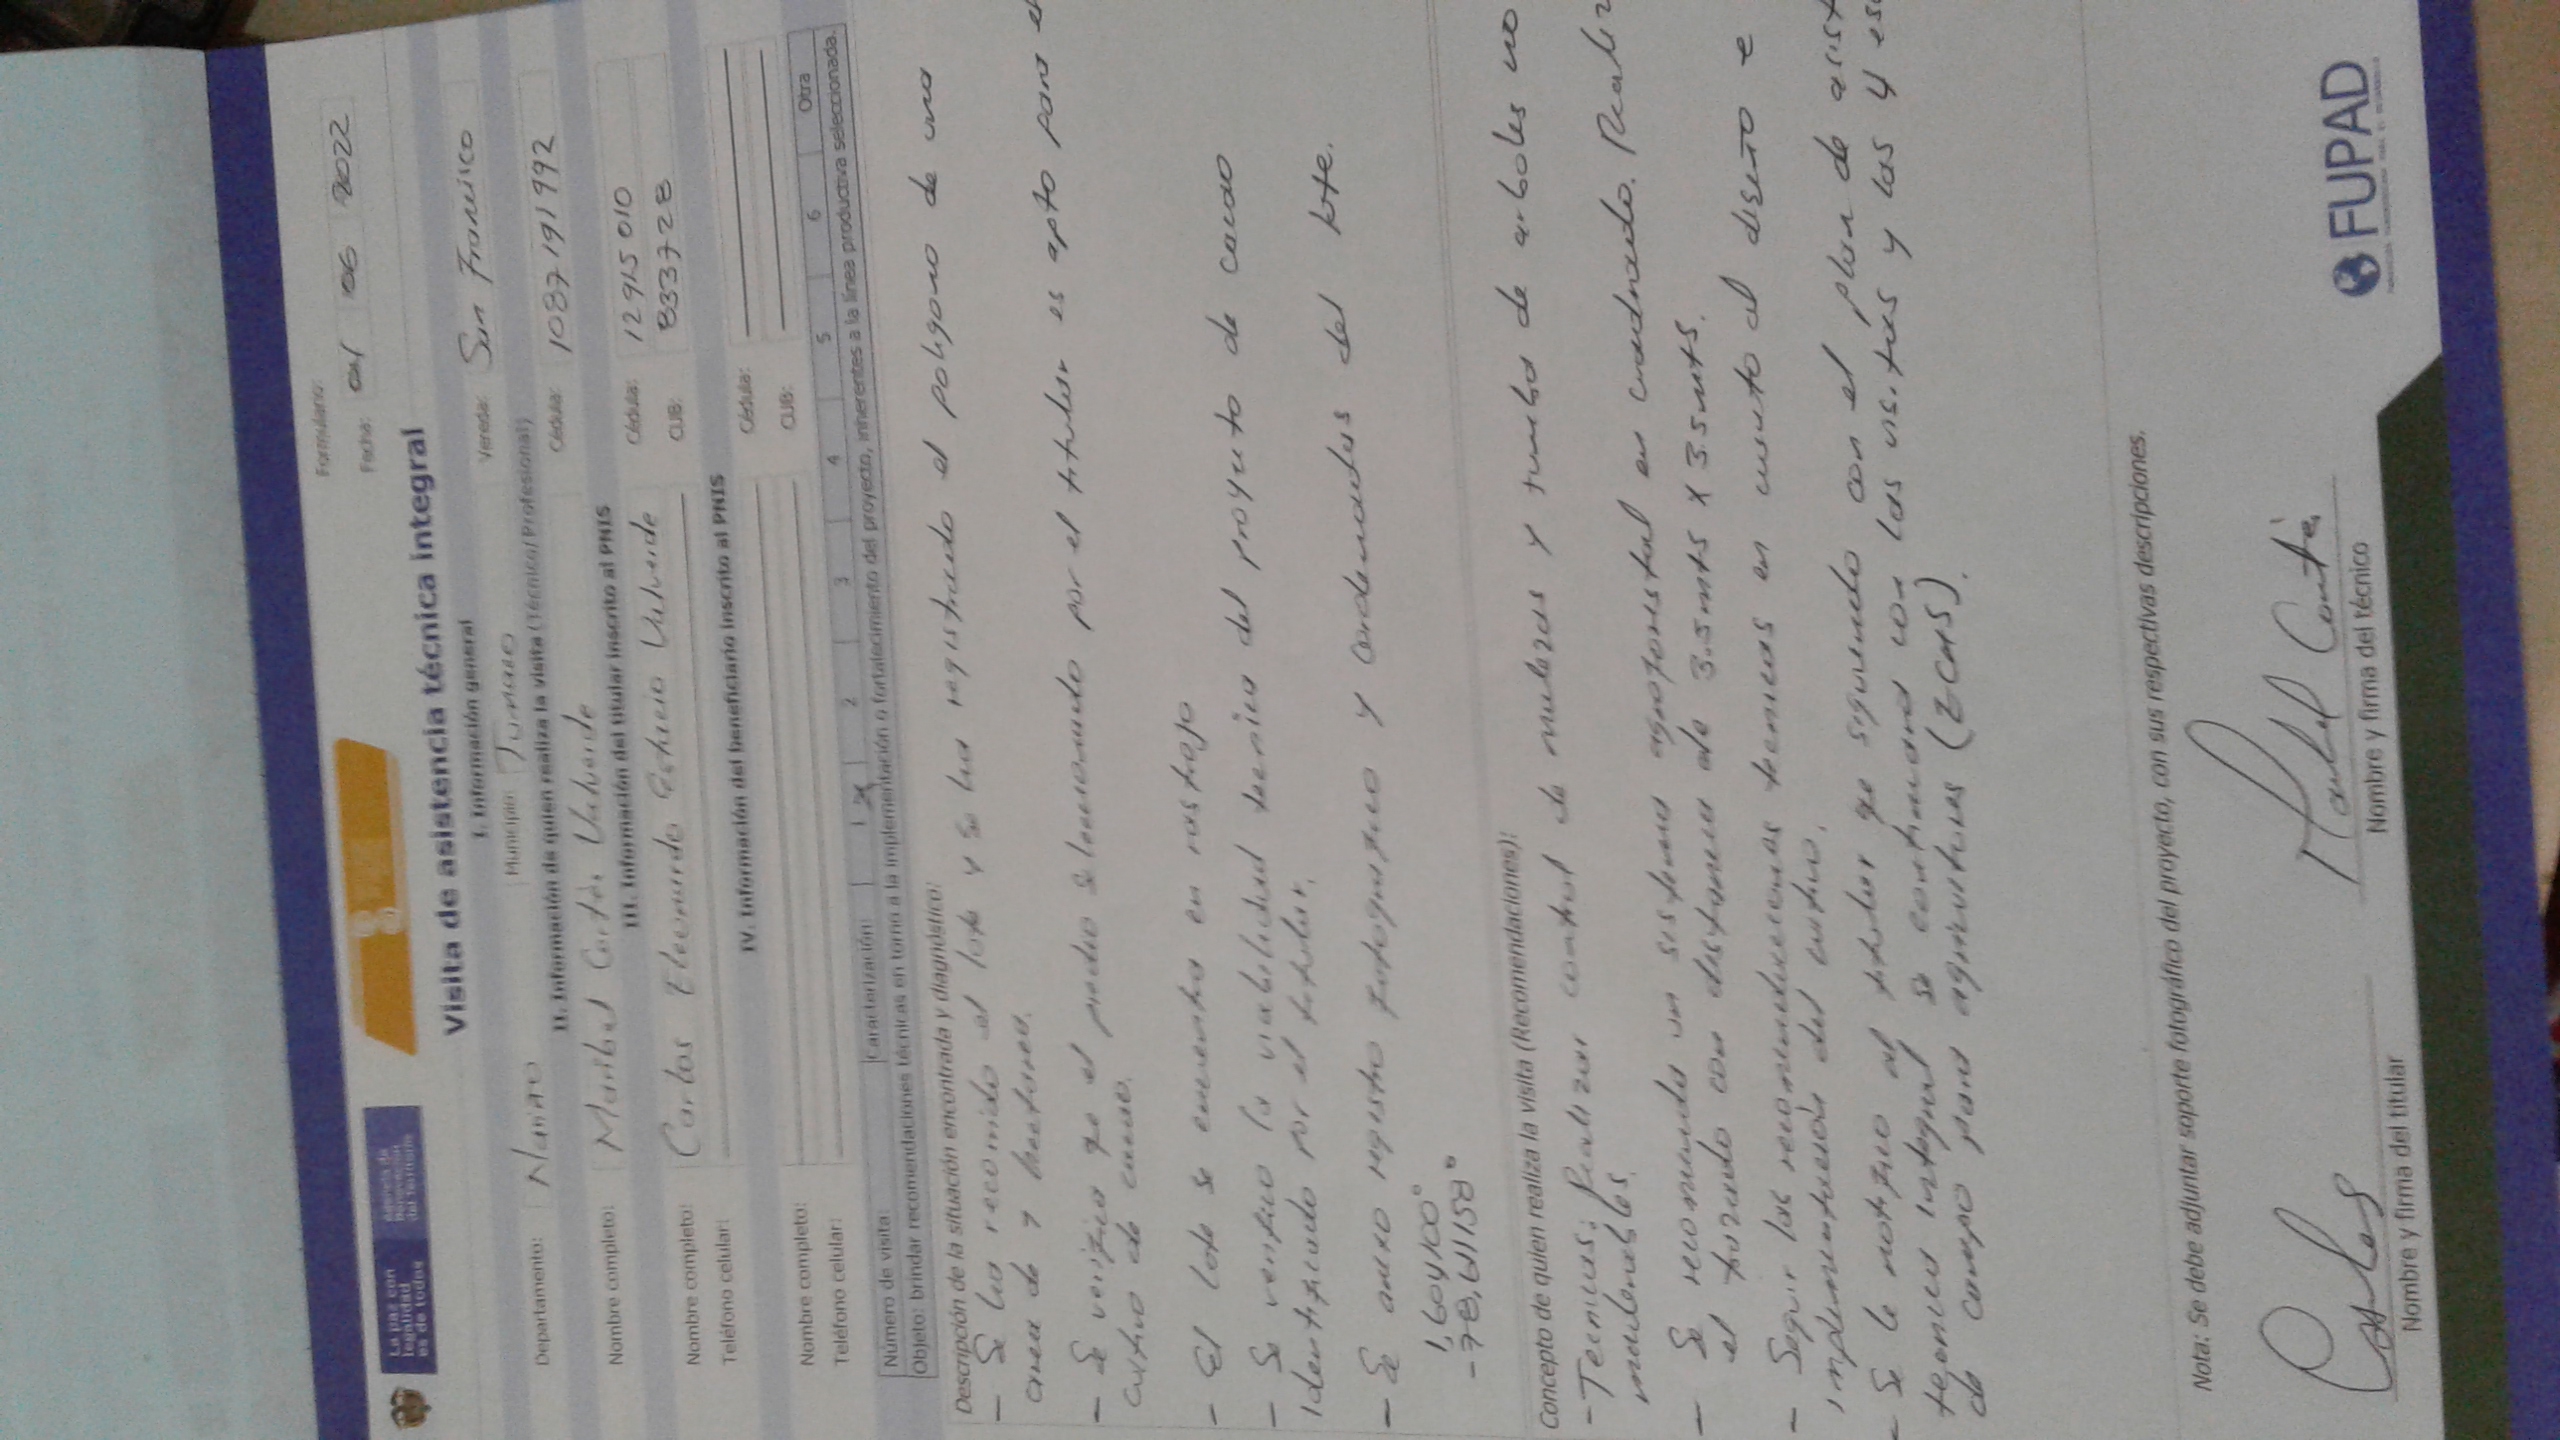 La paz en
legalidad
es de todos
Agencia de
Renovación
del Territorio
Formulario:
Fecha: 04 06 2022
Visita de asistencia técnica integral
I. Información general
Departamento: Nariño Municipio: Tumaco Vereda: San Francisco
II. Información de quien realiza la visita (Técnico/Profesional)
Nombre completo: Maribel Cortés Valverde Cédula: 1087191992
III. Información del titular inscrito al PNIS
Nombre completo: Carlos Eleonardo Valverde Cédula: 12915010
Teléfono celular: CUB: 833728
IV. Información del beneficiario inscrito al PNIS
Nombre completo: Cédula:
Teléfono celular: CUB:
Número de visita: Caracterización: 1 X 2 3 4 5 6 Otra
Objeto: brindar recomendaciones técnicas en torno a la implementación o fortalecimiento del proyecto, inherentes a la línea productiva seleccionada.
Descripción de la situación encontrada y diagnóstico:
- Se ha recorrido el lote y se ha registrado el poligono de una
area de 1 hectarea.
- Se verifico que el predio seleccionado por el titular es apto para el
cultivo de cacao.
- El lote se encuentra en rastrojo
- Se verifico la viabilidad tecnica del proyecto de cacao
identificado por el titular.
- Se anexo registro fotografico y cordenadas del lote.
1,604100°
-78,641158°
Concepto de quien realiza la visita (Recomendaciones):
- Tecnicas: Realizar control de malezas y tumba de arboles no
maderables.
- Se recomienda un sistema agroforestal en cuadrado. Realiz
el trazado con distancia de 3.5mts x 3.5mts.
- Seguir las recomendaciones tecnicas en cuanto al diseño e
implementación del cultivo.
- Se le notifico al titular que siguiendo con el plan de asist
tecnica integral se continuara con las visitas y las 4 esc
de campo para agricultores (ECAS).
Nota: Se debe adjuntar soporte fotográfico del proyecto, con sus respectivas descripciones.
Carlos
Nombre y firma del titular
Maribel Cortés
Nombre y firma del técnico
FUPAD